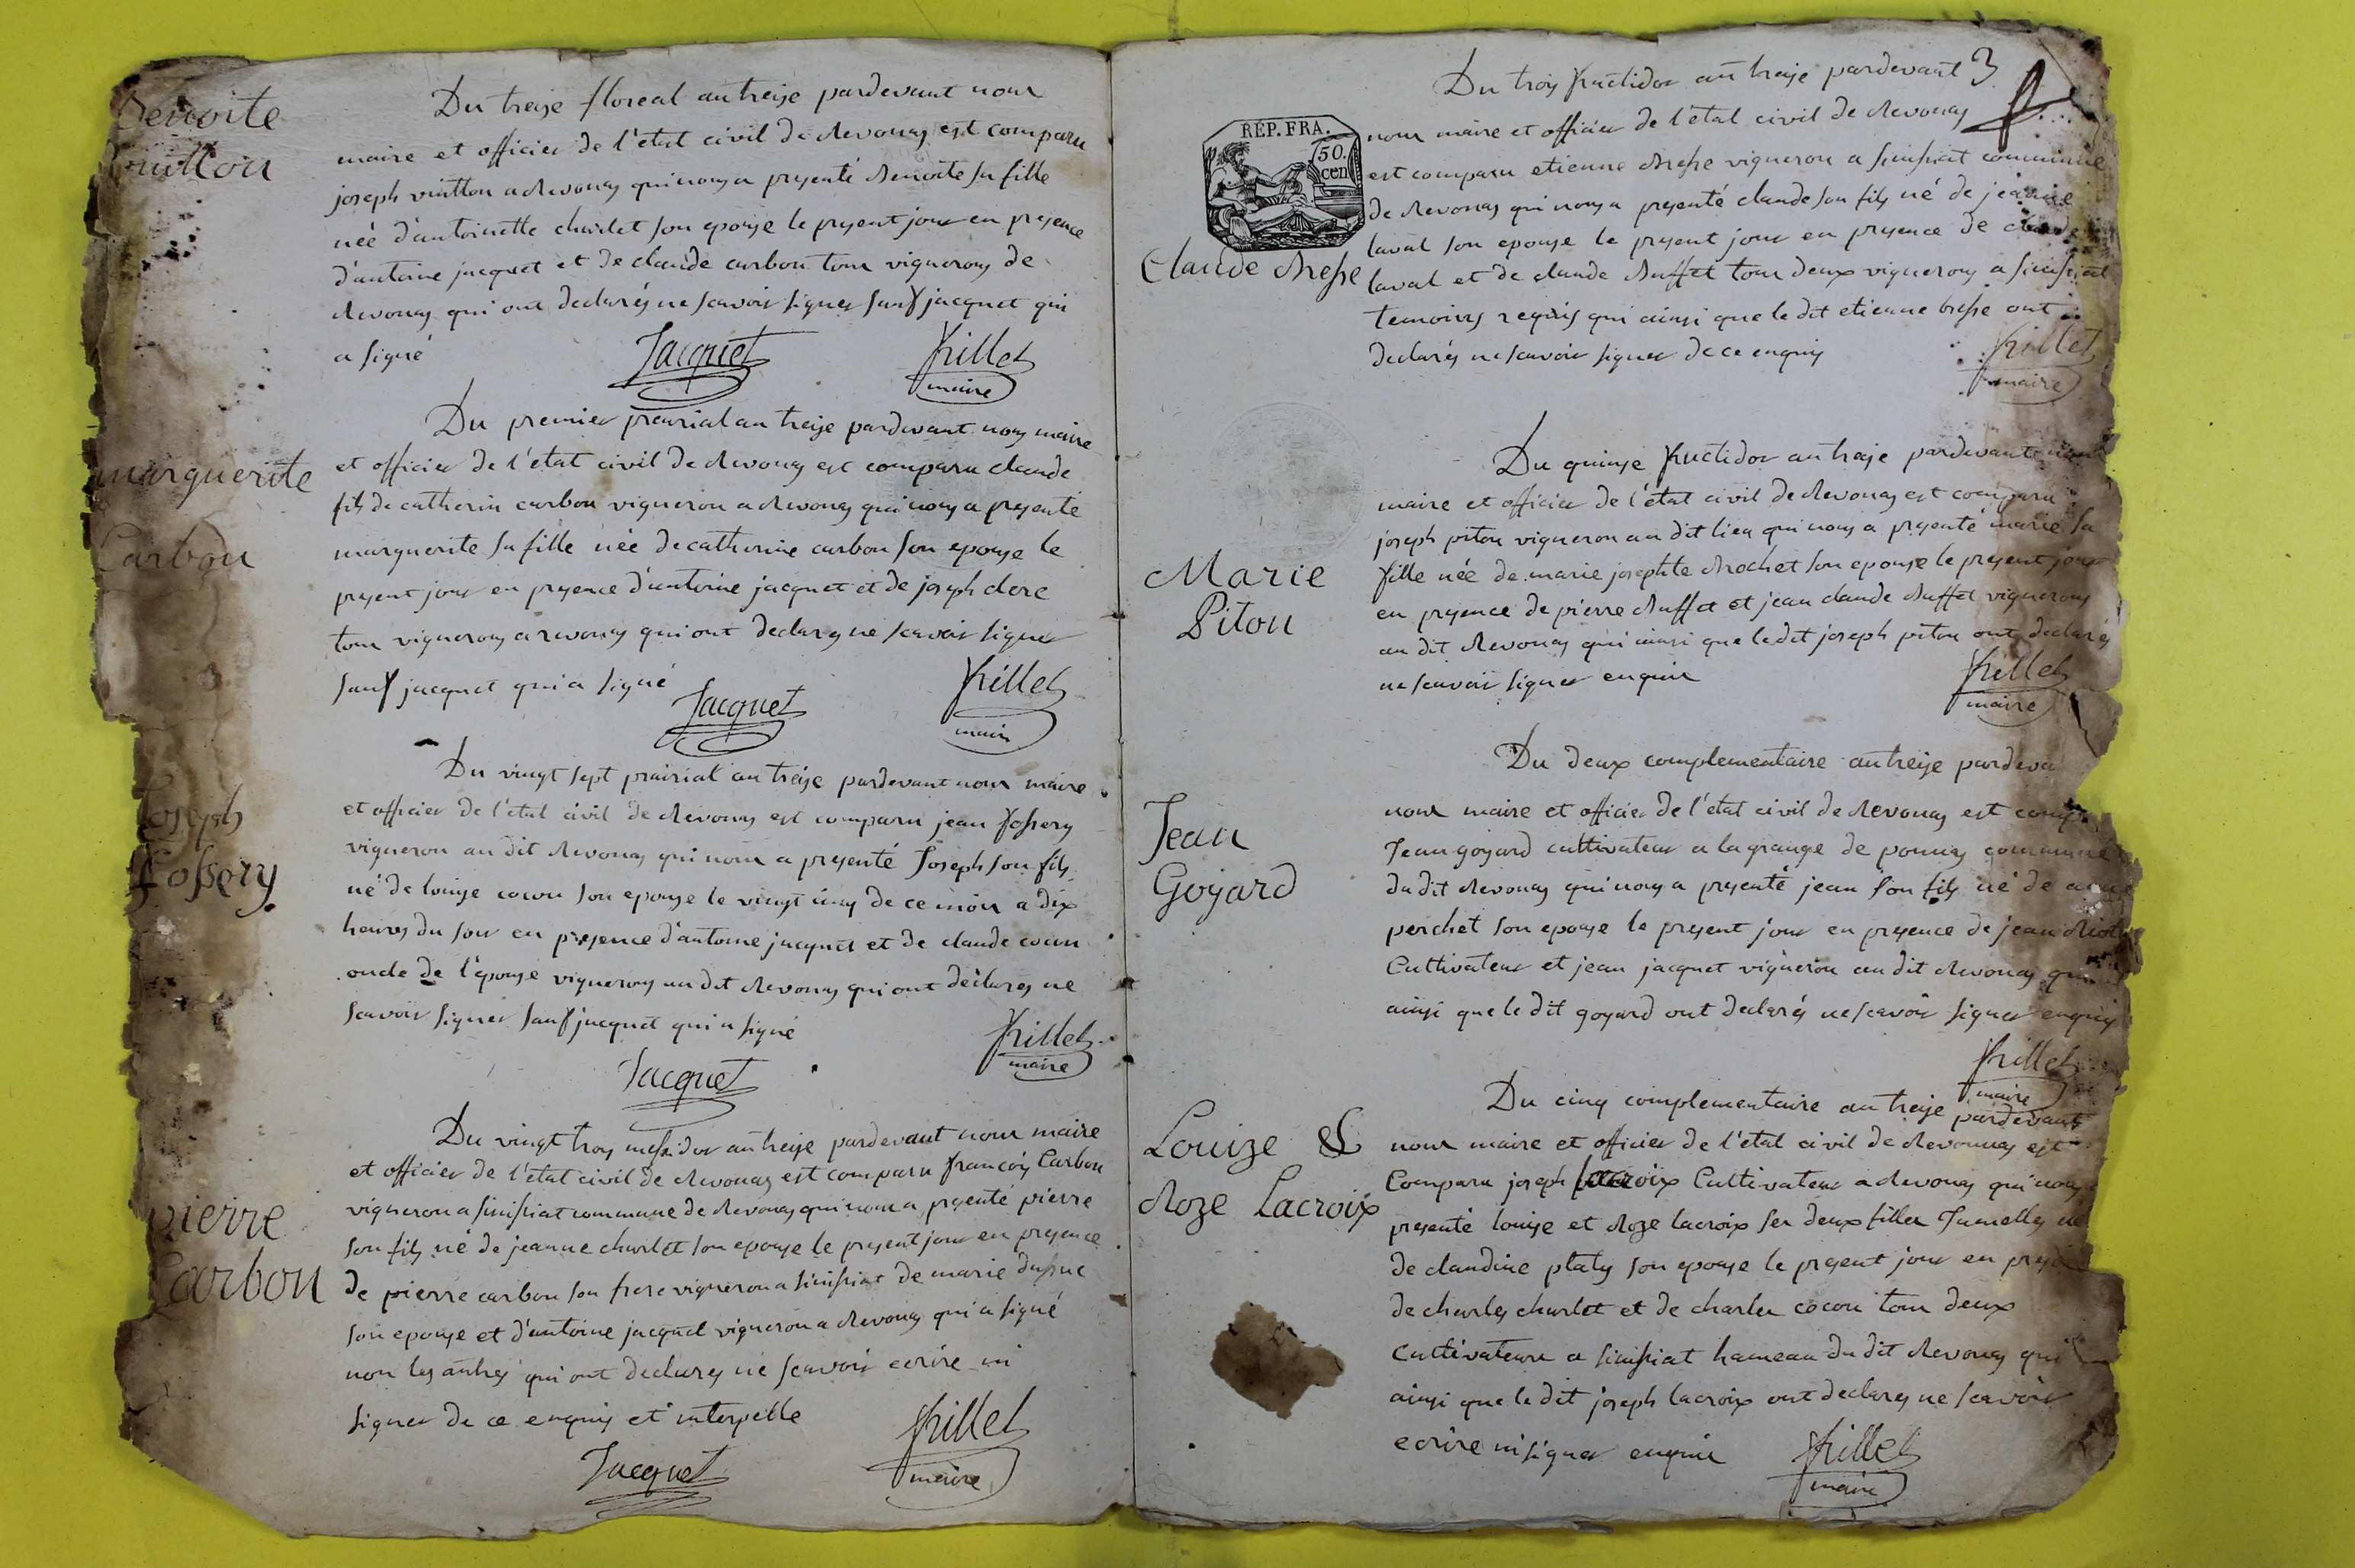 Benoite
vuitton
Du treize floreal an treize pardevant nous
maire et officier de l'état civil de Revonas est comparu
joseph vuitton a Revonas qui nous a presenté Benoite sa fille
née d'antoinette charlet son epouse le present jour en presence
d'antoine jacquet et de claude carbon tous vignerons de
Revonas qui ont declarés ne scavoir signer sauf jacquet qui
a signé
Jacquet
frillet
maire
marguerite
Carbon
Du premier prairial an treize pardevant nous maire
et officier de l'état civil de Revonas est comparu claude
fils de catherin carbon vigneron a Revonas qui nous a presenté
marguerite sa fille née de catherine carbon son epouse le
present jour en presence d'antoine jacquet et de joseph clerc
tous vignerons a revonas qui ont declarés ne scavoir signer
sauf jacquet qui a signé
Jacquet
frillet
maire
Joseph
fossery
Du vingt sept prairial an treize pardevant nous maire
et officier de l'état civil de Revonas est comparu jean fossery
vigneron au dit Revonas qui nous a presenté Joseph son fils
né de louise cocon son epouse le vingt cinq de ce mois a dix
heures du soir en presence d'antoine jacquet et de claude cocon
oncle de l'epouse vignerons au dit Revonas qui ont déclarés ne
scavoir signer sauf jacquet qui a signé
frillet
maire
Jacquet
pierre
Carbon
Du vingt trois messidor an treize pardevant nous maire
et officier de l'état civil de Revonas est comparu francois Carbon
vigneron a simissiat commune de Revonas qui nous a presenté pierre
son fils né de jeanne charlet son epouse le present jour en presence
de pierre carbon son frere vigneron a simissiat de marie
son epouse et d'antoine jacquet vigneron a Revonas qui a signé
non les autres qui ont declarés ne scavoir ecrire ni
signer de ce enquis et interpelle
Jacquet
frillet
maire
3
RÉP. FRA.
50
cen
Claude Bresse
Du trois fructidor an treize pardevant
nous maire et officier de l'état civil de Revonas
est comparu etienne Bresse vigneron a simissiat commune
de Revonas qui nous a presenté claude son fils né de jeanne
laval son epouse le present jour en presence de claude
laval et de claude Buffet tous deux vignerons a simissiat
temoins requis qui ainsi que le dit etienne bresse ont
declarés ne scavoir signer de ce enquis
frillet
maire
Marie
Piton
Du quinze fructidor an treize pardevant nous
maire et officier de l'état civil de Revonas est comparu
joseph piton vigneron au dit lieu qui nous a presenté marie sa
fille née de marie josephte Brochet son epouse le present jour
en presence de pierre Buffet et jean claude Buffet vignerons
au dit Revonas qui ainsi que le dit joseph piton ont declarés
ne scavoir signer enquis
frillet
maire
Jean
Goyard
Du deux complementaire an treize pardeva
nous maire et officier de l'état civil de Revonas est comp
Jean goyard cultivateur a la grange de commune
du dit Revonas qui nous a presenté jean son fils né de
perchet son epouse le present jour en presence de jean
Cultivateur et jean jacquet vigneron au dit Revonas qui
ainsi que le dit goyard ont declarés ne scavoir signer enquis
frillet
maire
Louize &
Roze Lacroix
Du cinq complementaire an treize pardevant
nous maire et officier de l'état civil de Revonnas est
Comparu joseph lacroix Cultivateur a Revonas qui nous
presenté louise et Roze lacroix ses deux filles Jumelles né
de claudine platy son epouse le present jour en prese
de charles charlet et de charles cocon tous deux
Cultivateurs a simissiat hameau du dit Revonas qui
ainsi que le dit joseph lacroix ont declarés ne scavoir
ecrire ni signer enquis
frillet
maire